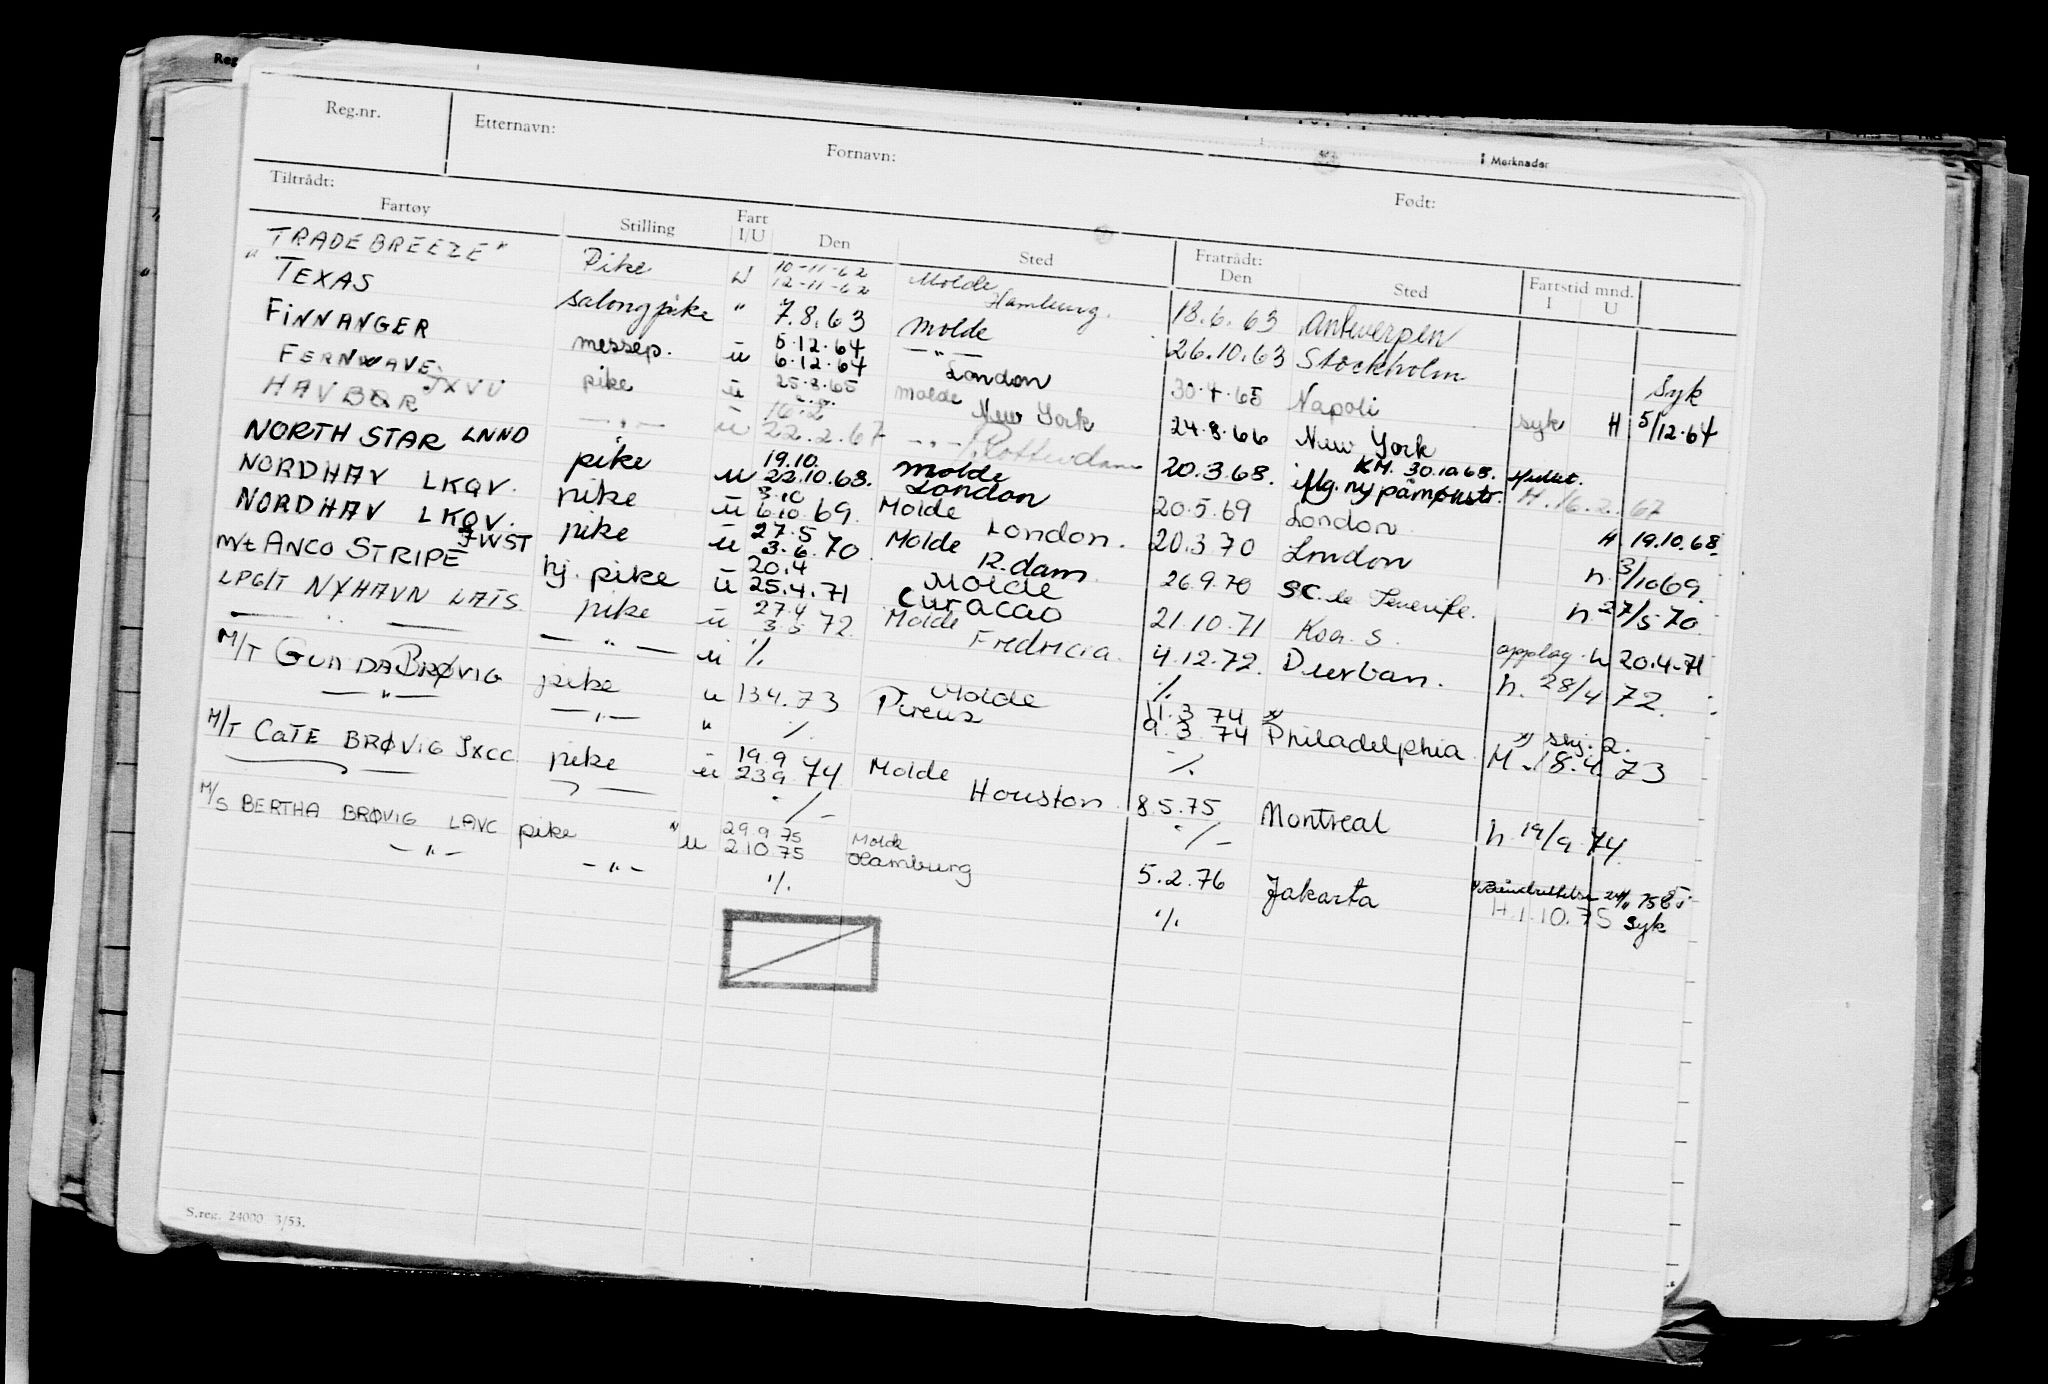 Reg.nr. Etternavn: Fornavn: Født:
Merknader
Tiltrådt: Fratrådt:
Fartøy Stilling Fart I/U Den Sted Den Sted Fartstid mnd. I U
"TRADEBREEZE" Pike U 10-11-62 12-11-62 Molde Hamburg. 18.6.63 Antwerpen
" TEXAS salongpike " 7.8.63 Molde 26.10.63 Stockholm Syk
FINNANGER messep. u 5.12.64 6.12.64 — " — London 30.4.65 Napoli syk H 5/12.64
FERNWAVE JXVU pike u 25.8.65 Molde New York 24.8.66 New York
HAVBØR — " — u 16.2 22.2.67 — " — Rotterdam 20.3.68. iflg. ny påmønstr. KM. 30.10.68. H. 16.2.67
NORTH STAR LNND pike u 19.10. 22.10.68. Molde London 20.5.69 London H 19.10.68
NORDHAV LKQV. pike u 3.10 6.10.69. Molde London. 20.3.70 London h. 3/10 69.
NORDHAV LKQV. pike u 27.5 3.6.70 Molde R.dam 26.9.70 SC. de Tenerife. h 27/5 70.
m/t ANCO STRIPE JWST hj. pike u 20.4 25.4.71 Molde Curacao 21.10.71 Koa. S. opplag. h 20.4.71
LPG/T NYHAVN LATS pike u 27.4 3.5 72. Molde Fredricia. 4.12.72. Durban. h. 28/4 72.
— " — — " — u ⁒ ⁒
M/T GUNDA BRØVIG pike u 13.4.73 Molde Pireus 11.3 74 x) 9.3.74 Philadelphia x) skj. 2. M. 18.4.73
— " — — " — " ⁒ ⁒
M/T CATE BRØVIG JXCC pike u 19.9 23.9.74 Molde Houston. 8.5.75 Montreal h 19/9 74.
— " — ⁒ ⁒
M/S BERTHA BRØVIG LAVC pike u 29.9.75 2.10.75 Molde Hamburg 5.2.76 Jakarta H. 1.10.75 syk
— " — — " — ⁒ ⁒
S.reg. 24000 3/53.